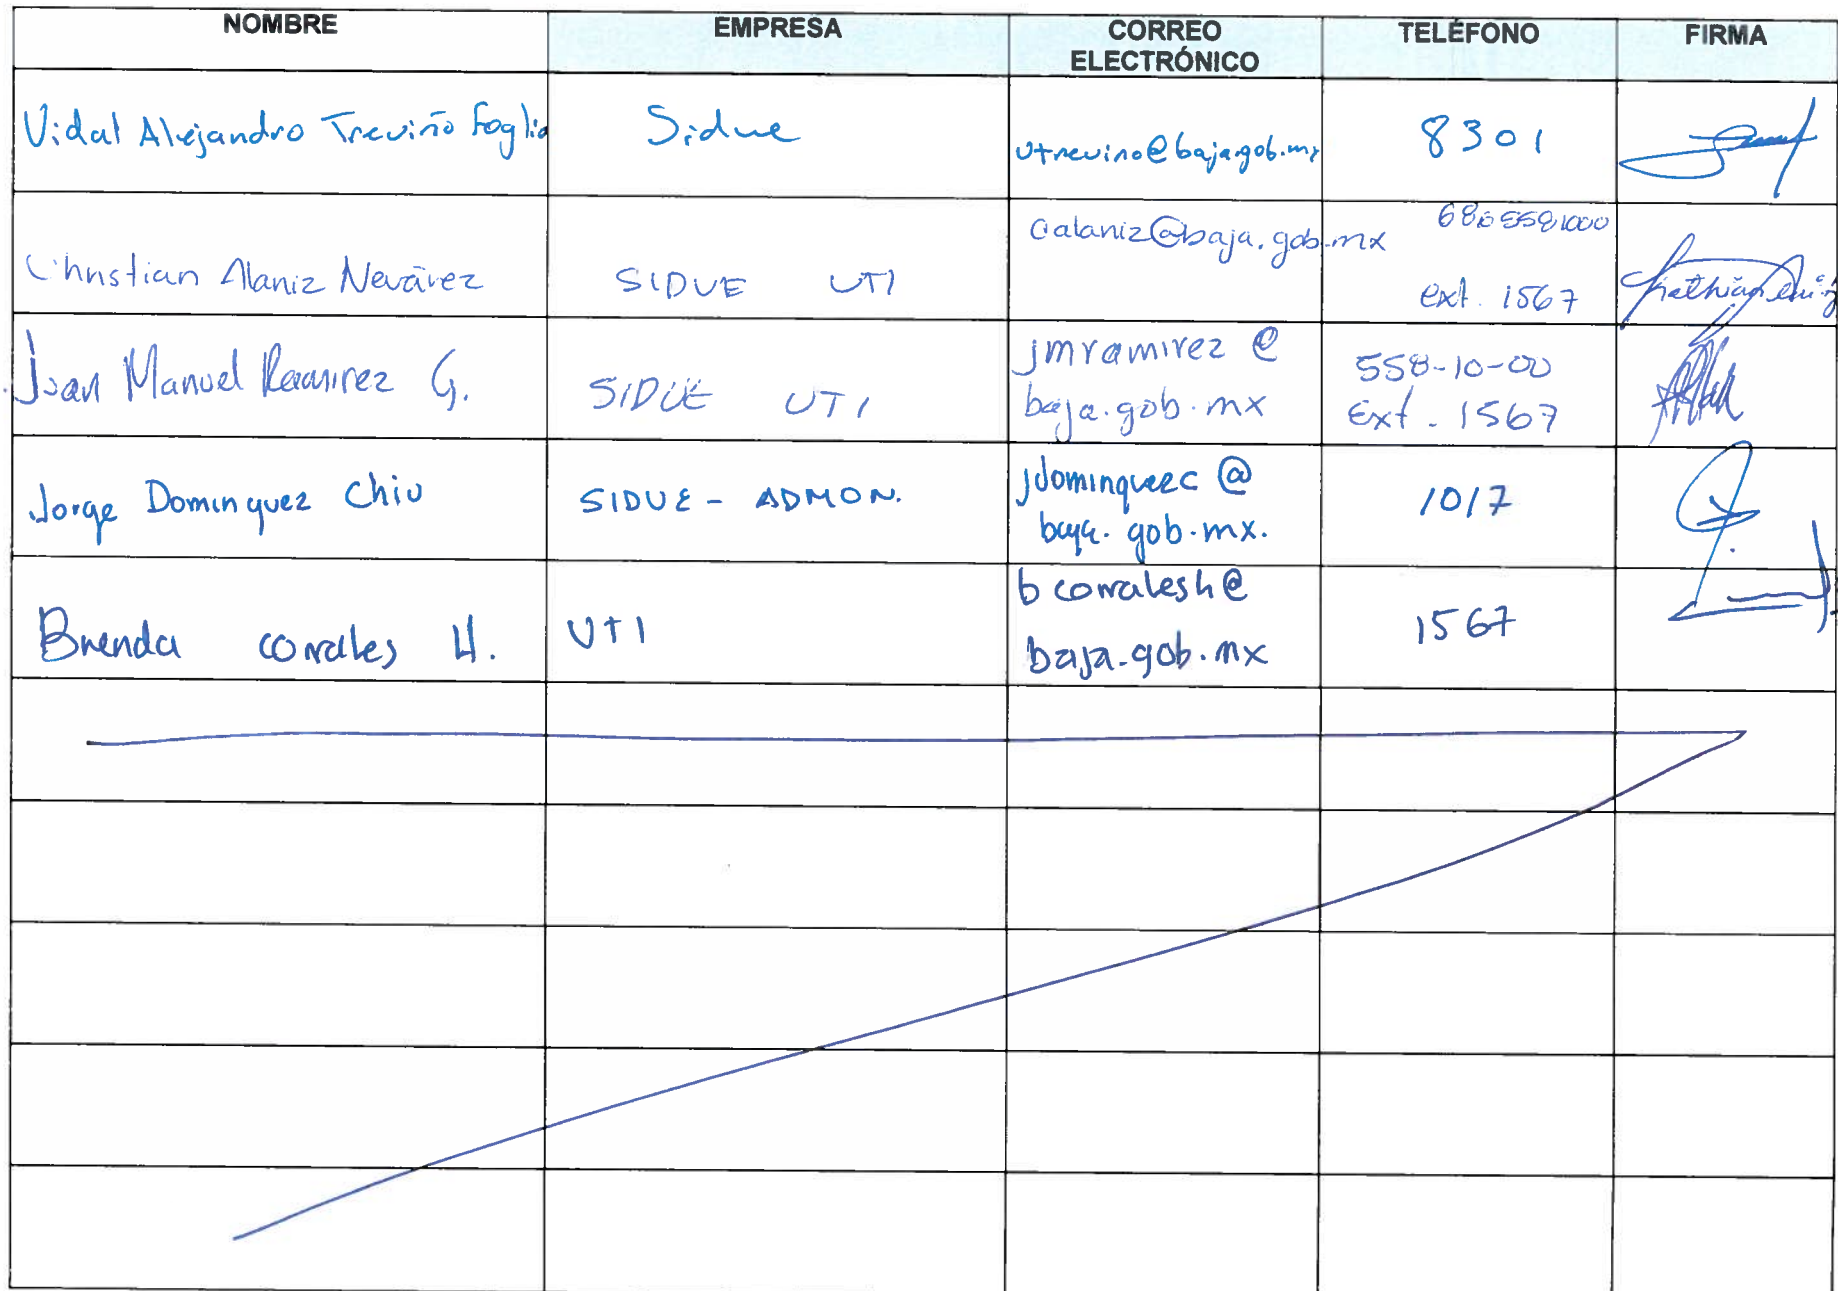 NOMBRE EMPRESA CORREO ELECTRÓNICO TELÉFONO FIRMA
Vidal Alejandro Treviño Foglio Sidue vtrevino@baja.gob.mx 8301
Christian Alaniz Nevárez SIDUE UTI calaniz@baja.gob.mx 6865581000
ext. 1567
Juan Manuel Ramirez G. SIDUE UTI jmramirez@ 558-10-00
baja.gob.mx Ext. 1567
Jorge Dominguez Chiu SIDUE - ADMON. jdominguezc@ 1017
baja.gob.mx.
Brenda corrales H. UTI bcorralesh@ 1567
baja.gob.mx